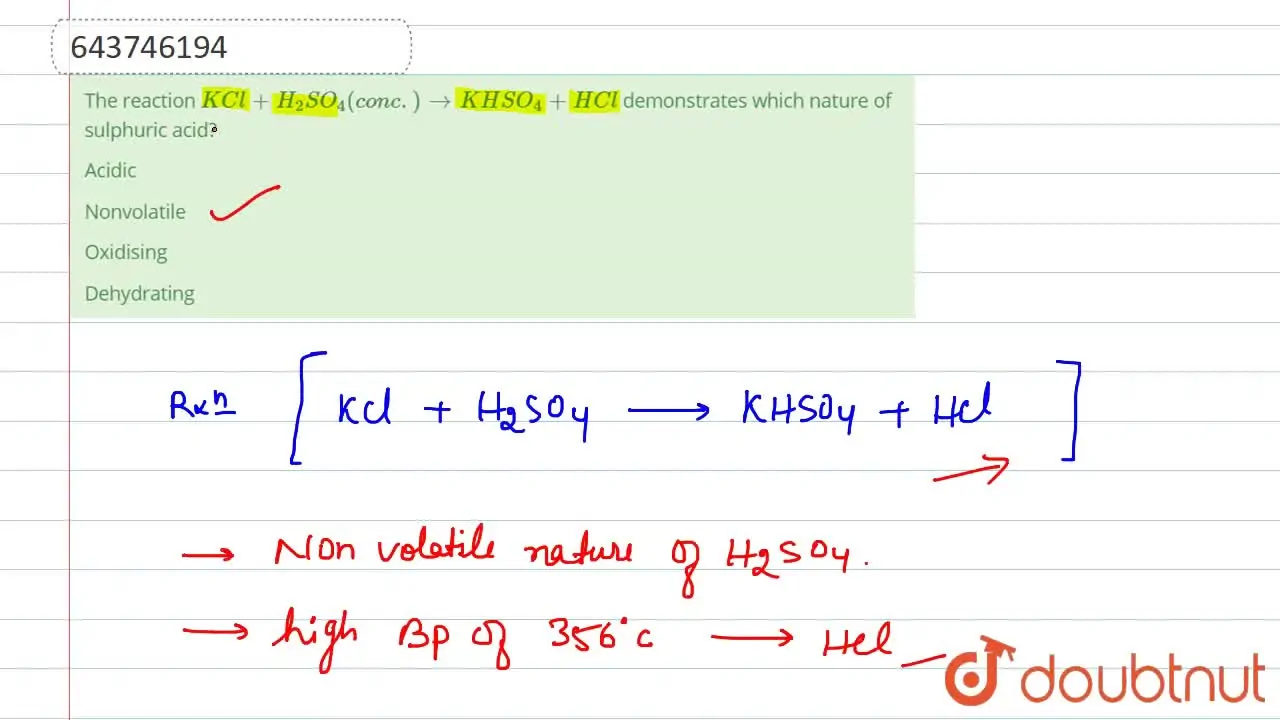 643746194
The reaction KCl + H₂SO₄(conc.) → KHSO₄ + HCl demonstrates which nature of
sulphuric acid?
Acidic
Nonvolatile
Oxidising
Dehydrating
Rxn [ KCl + H₂SO₄ → KHSO₄ + HCl ]
→ Non volatile nature of H₂SO₄.
→ high BP of 356°C → HCl
doubtnut